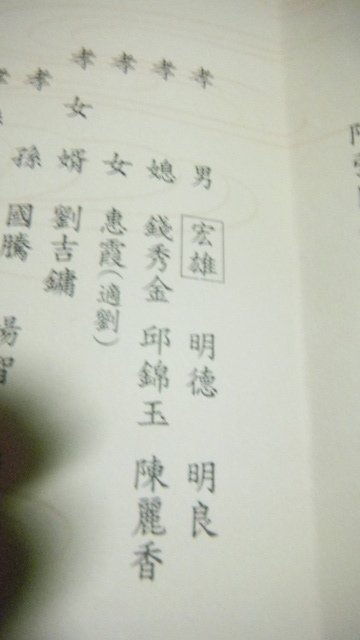 孝男 宏雄 明德 明良
孝媳 錢秀金 邱錦玉 陳麗香
孝女 惠霞(適劉)
孝女婿 劉吉鏞
孝孫 國騰